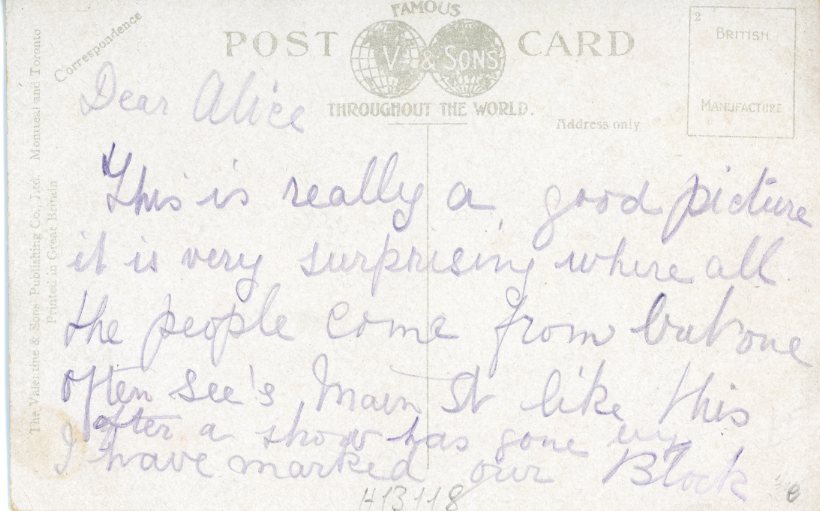 FAMOUS
POST CARD
V. & SONS
THROUGHOUT THE WORLD.
Correspondence
Address only
2
BRITISH
MANUFACTURE
The Valentine & Sons Publishing Co., Ltd. Montreal and Toronto
Printed in Great Britain
Dear Alice
This is really a good picture
it is very surprising where all
the people come from but one
often see's Main St like this
after a show has gone up
I have marked our Block
H13118